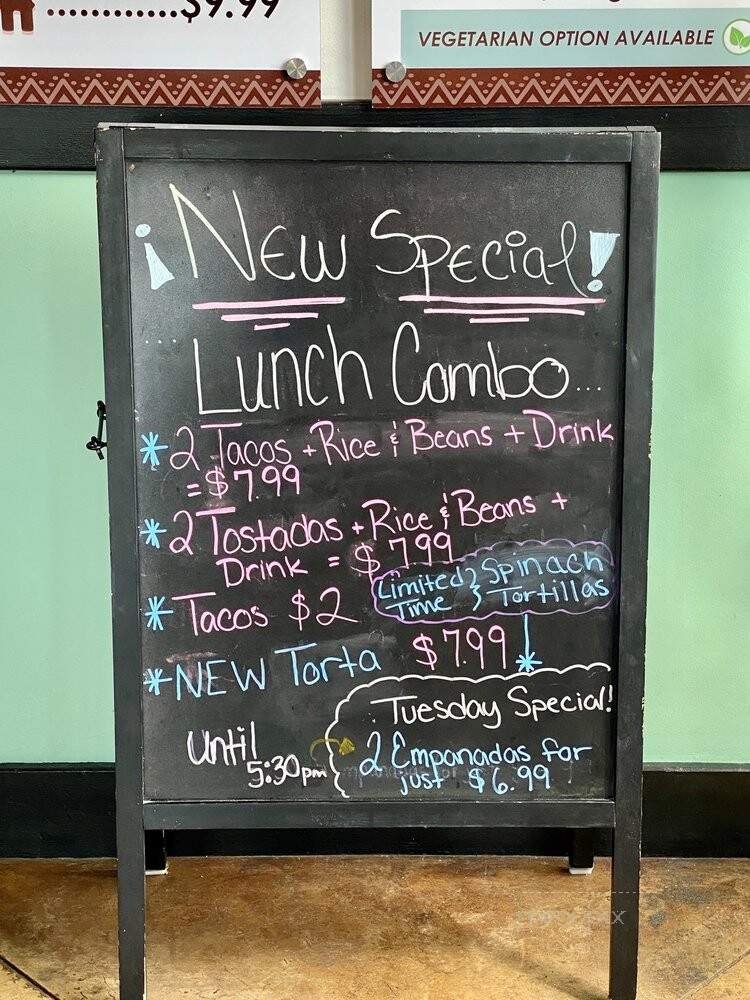 ............$9.99
VEGETARIAN OPTION AVAILABLE
¡New Special!
Lunch Combo...
* 2 Tacos + Rice & Beans + Drink
= $7.99
* 2 Tostadas + Rice & Beans +
Drink = $7.99
Limited } Spinach
Time } Tortillas
* Tacos $2
* NEW Torta $7.99 *
Tuesday Special!
Until
5:30pm
2 Empanadas for
just $6.99